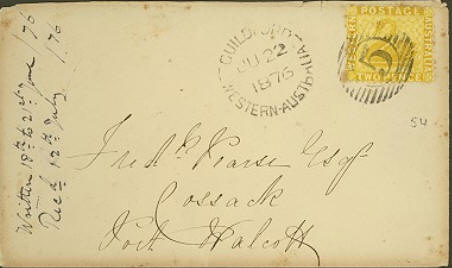 Written 18th to 21st June /76
Recd 12th July /76
GUILDFORD
JU 22
1876
WESTERN-AUSTRALIA
POSTAGE
WESTERN
AUSTRALIA
TWO PENCE
5
54
Fredk Pearse Esqr
Cossack
Port Walcott